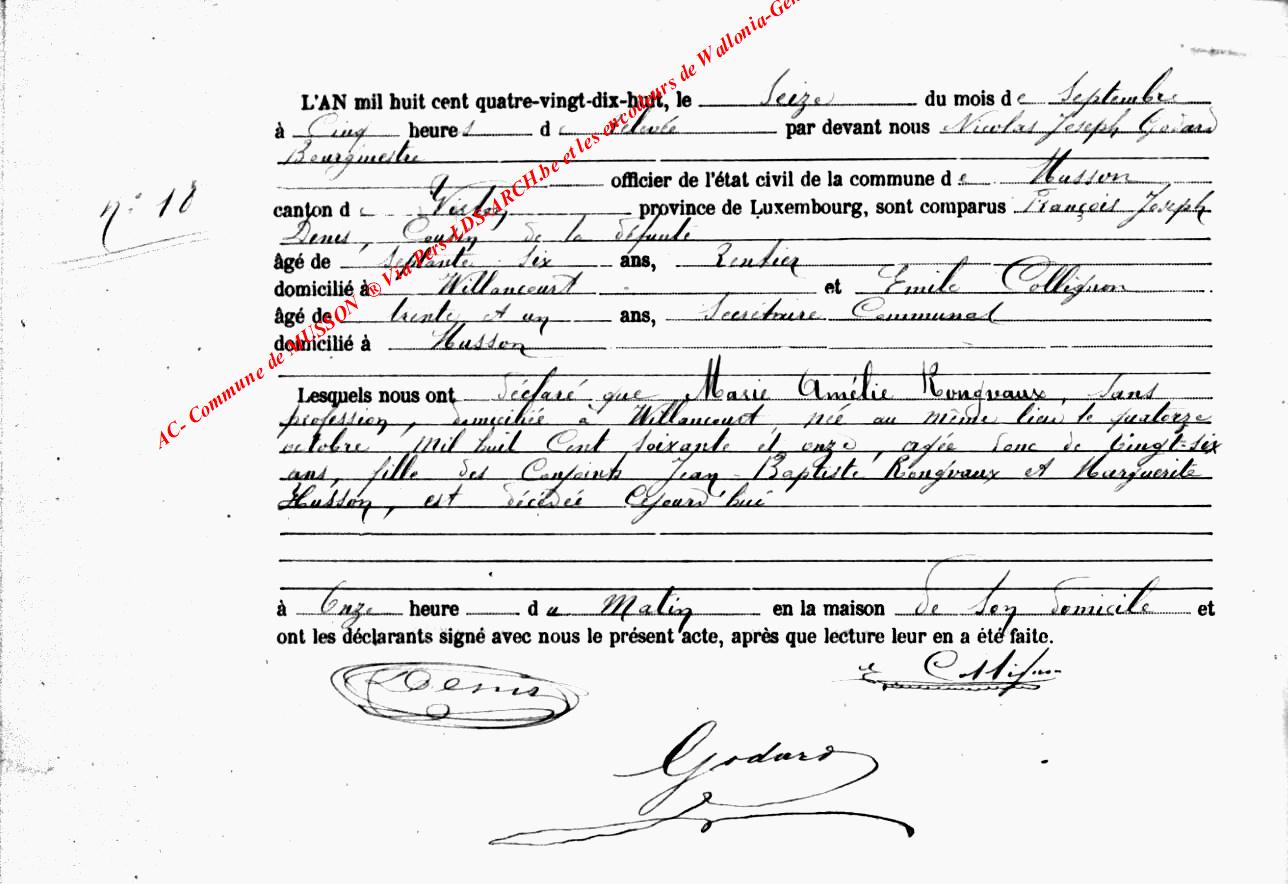 AC- Commune de MUSSON ® Via Pers-LDS-ARCH.be et les encodeurs de Wallonia-Gen
L'AN mil huit cent quatre-vingt-dix-huit, le Seize du mois de Septembre
à Cinq heures de relevée par devant nous Nicolas Joseph Godard
Bourgmestre
officier de l'état civil de la commune de Musson
n° 18
canton de Virton province de Luxembourg, sont comparus François Joseph
Denis, Cousin de la défunte
âgé de septante six ans, Rentier
domicilié à Willancourt et Emile Collignon
âgé de trente et un ans, Secrétaire Communal
domicilié à Musson
Lesquels nous ont déclaré que Marie Amélie Rongvaux, sans
profession, domiciliée à Willancourt, née au même lieu le quatorze
octobre mil huit Cent soixante et onze, agée donc de vingt-six
ans, fille des Conjoints Jean-Baptiste Rongvaux et Marguerite
Husson, est décédée Cejourd'hui
à Onze heure du Matin en la maison de son domicile et
ont les déclarants signé avec nous le présent acte, après que lecture leur en a été faite.
Denis
E Collignon
Godard